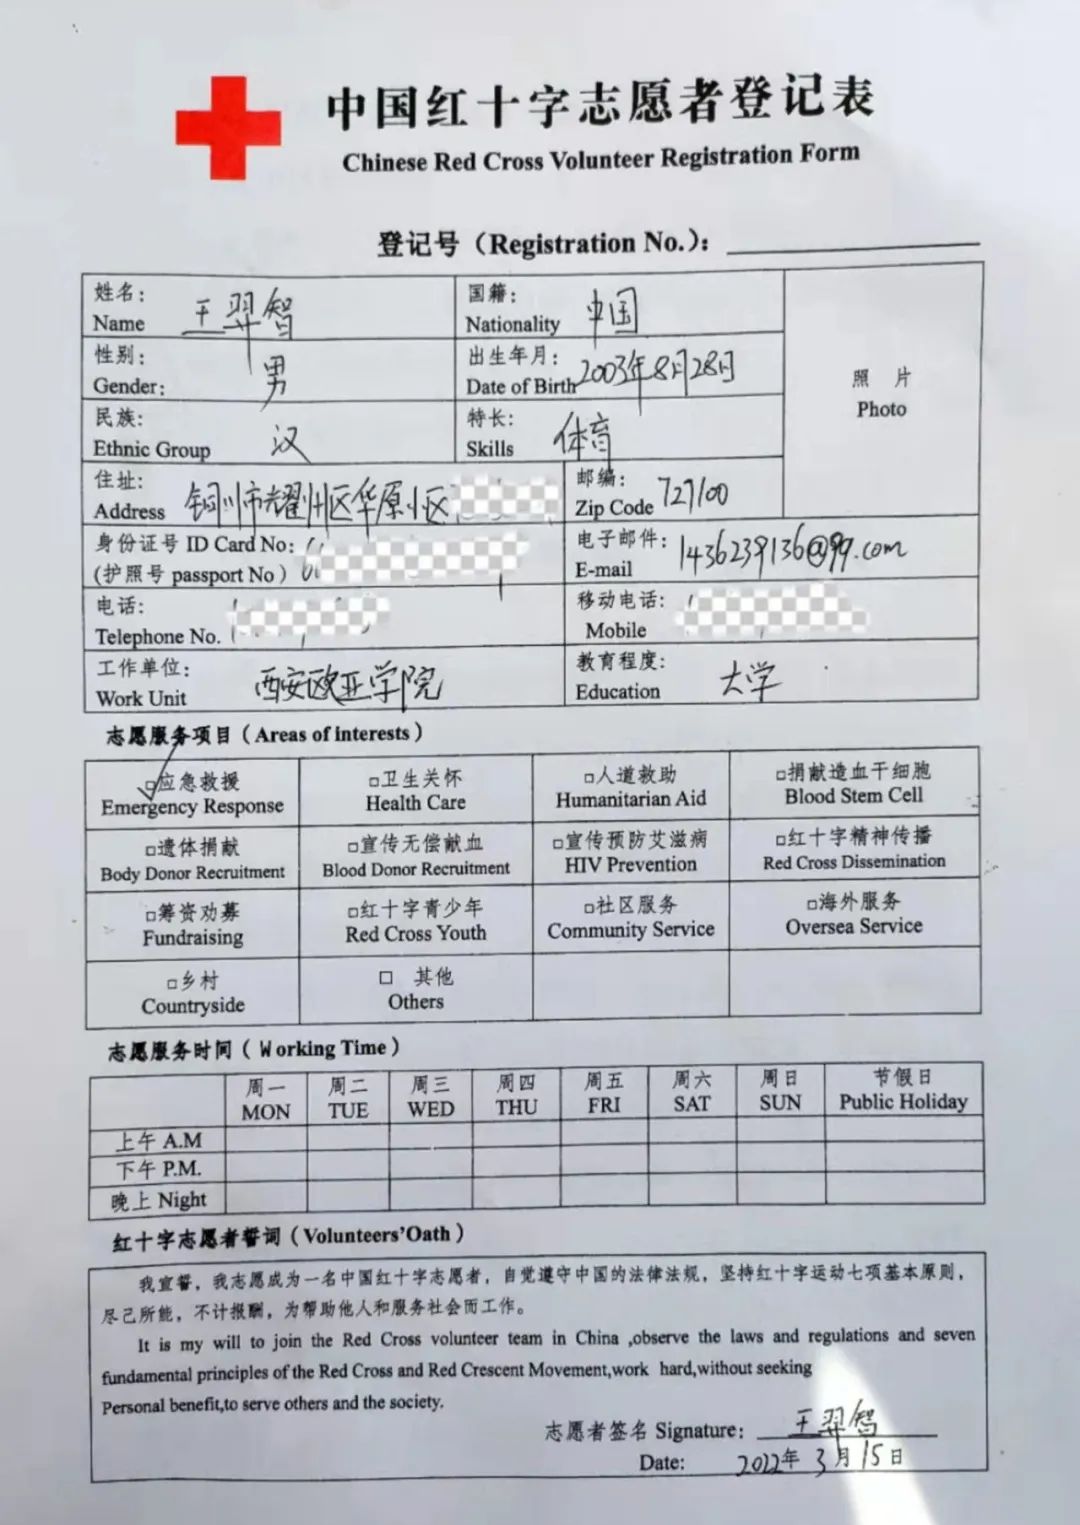 中国红十字志愿者登记表
Chinese Red Cross Volunteer Registration Form
登记号（Registration No.）：
姓名： 王羿智 国籍： 中国
Name Nationality
性别： 男 出生年月： 2003年8月28日
Gender: Date of Birth
民族： 汉 特长： 体育
Ethnic Group Skills
照 片
Photo
住址： 铜川市耀州区华原小区 邮编： 727100
Address Zip Code
身份证号 ID Card No: 电子邮件： 1436239136@qq.com
(护照号 passport No） E-mail
电话： 移动电话：
Telephone No. Mobile
工作单位： 西安欧亚学院 教育程度： 大学
Work Unit Education
志愿服务项目（Areas of interests）
□应急救援 □卫生关怀 □人道救助 □捐献造血干细胞
Emergency Response Health Care Humanitarian Aid Blood Stem Cell
□遗体捐献 □宣传无偿献血 □宣传预防艾滋病 □红十字精神传播
Body Donor Recruitment Blood Donor Recruitment HIV Prevention Red Cross Dissemination
□筹资劝募 □红十字青少年 □社区服务 □海外服务
Fundraising Red Cross Youth Community Service Oversea Service
□乡村 □ 其他
Countryside Others
志愿服务时间（Working Time）
周一 周二 周三 周四 周五 周六 周日 节假日
MON TUE WED THU FRI SAT SUN Public Holiday
上午 A.M
下午 P.M.
晚上 Night
红十字志愿者誓词（Volunteers'Oath）
我宣誓，我志愿成为一名中国红十字志愿者，自觉遵守中国的法律法规，坚持红十字运动七项基本原则，
尽己所能，不计报酬，为帮助他人和服务社会而工作。
It is my will to join the Red Cross volunteer team in China ,observe the laws and regulations and seven
fundamental principles of the Red Cross and Red Crescent Movement,work hard,without seeking
Personal benefit,to serve others and the society.
志愿者签名 Signature: 王羿智
Date: 2022年3月15日